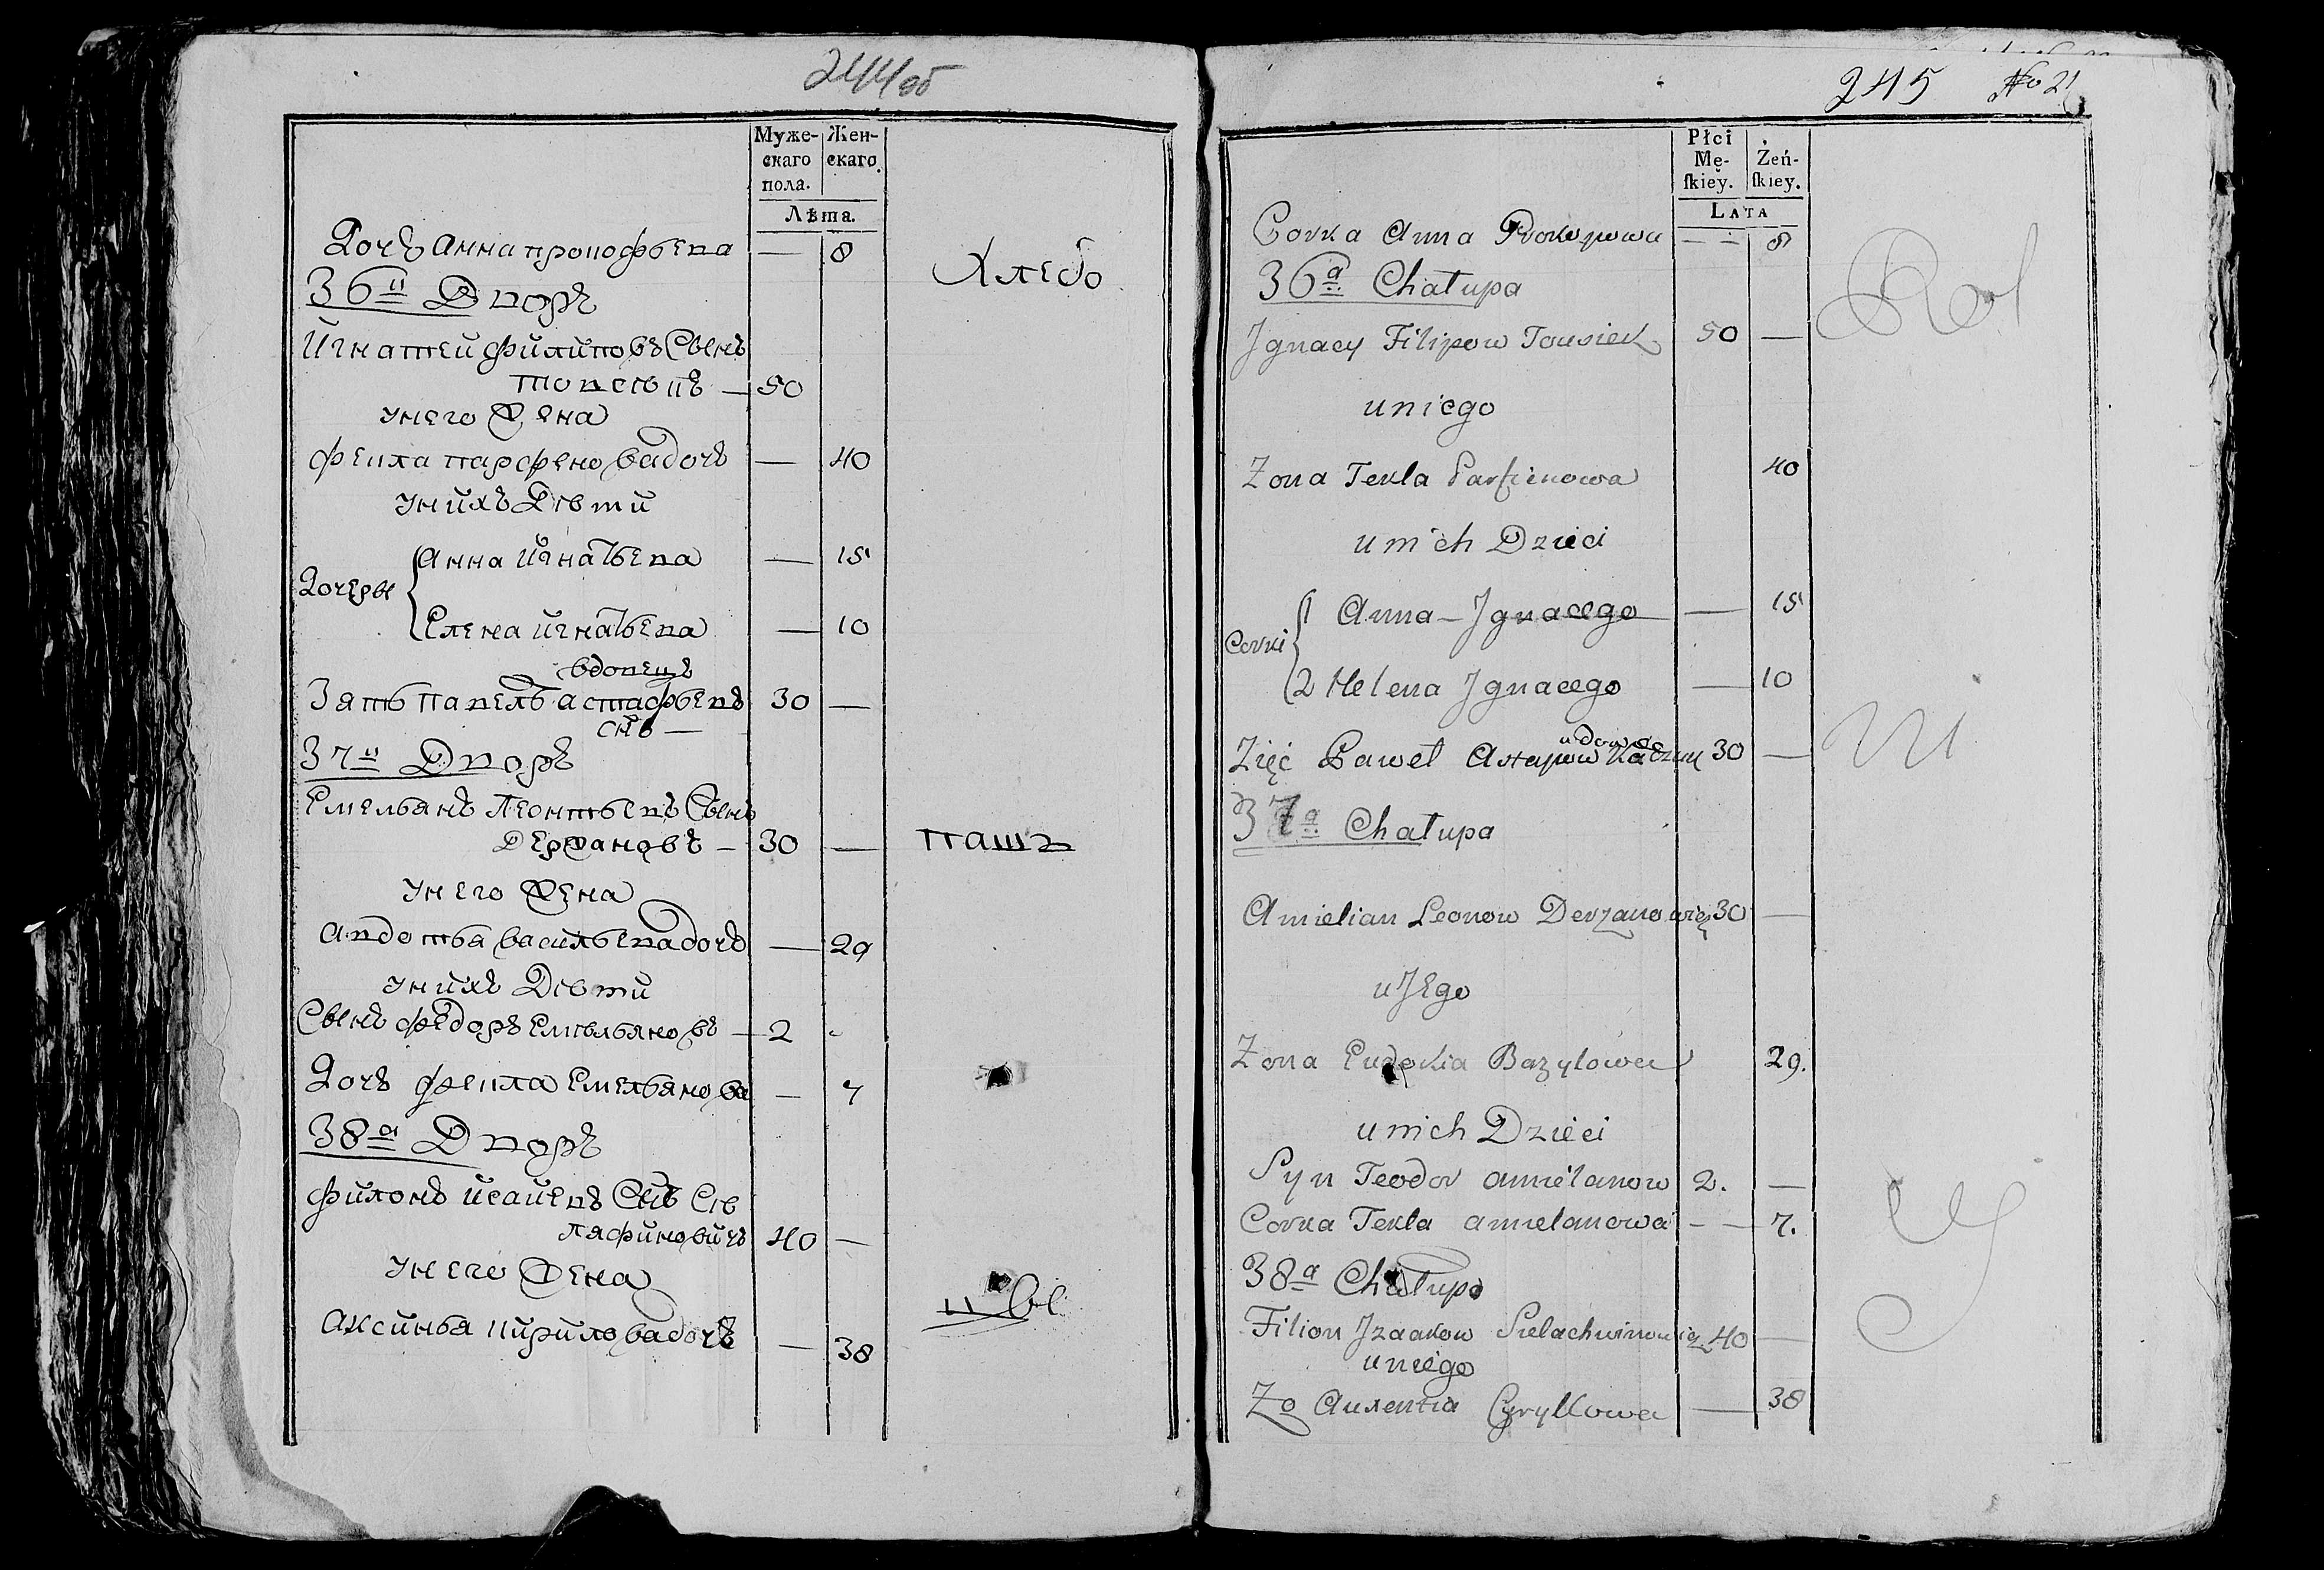 244об
Муже-
скаго
пола.
Жен-
скаго.
Лѣта.
Дочъ Анна прокофьева — 8
36й Дворъ
Хлебо
Игнатей филиповъ Сынъ
товсюкъ — 50
унего Жена
фекла парфеновадочъ — 40
унихъ Дѣти
Дочеры
Анна Игнатьева — 15
Елена Игнатьева — 10
вдовецъ
Зять павелъ астафьевъ 30 —
снъ —
37й Дворъ
Емельянъ Леонтьевъ Сынъ
Держановъ — 30 —
пашъ
унего Жена
Авдотья васильевадочъ — 29
унихъ Дѣти
Сынъ федоръ Емѣльяновъ — 2 -
Дочъ фекла Емельянова — 7
38й Дворъ
филонъ исаиевъ Снъ Сѣ
ляфиновичъ 40 —
унего Жена
Аксинья кириловадочъ — 38
кы
245 No 21
Płci
Mę-
ſkiey.
Żeń-
ſkiey.
LATA
Corka Anna Prokopowa — — 8
36a Chałupa
Rol
Jgnacy Filipow Towsiek 50 —
uniego
Zona Tekla Parfienowa 40
unich Dzieci
Corki
1 Anna — Jgnacego — 15
2 Helena Jgnacego — 10
udowiec
Zięć Paweł Astapow 30 —
ni
37a Chałupa
Amielian Leonow Derzanowicz 30 —
uJego
Zona Eudokia Bazylowa 29.
unich Dzieci
Syn Teodor amielanow 2. —
Corka Tekla amielanowa — — 7.
38a Chałupa
Filion Jzaakow Sielachwinowicz 40 —
uniego
Zo Auxentia Cyryllowa — 38